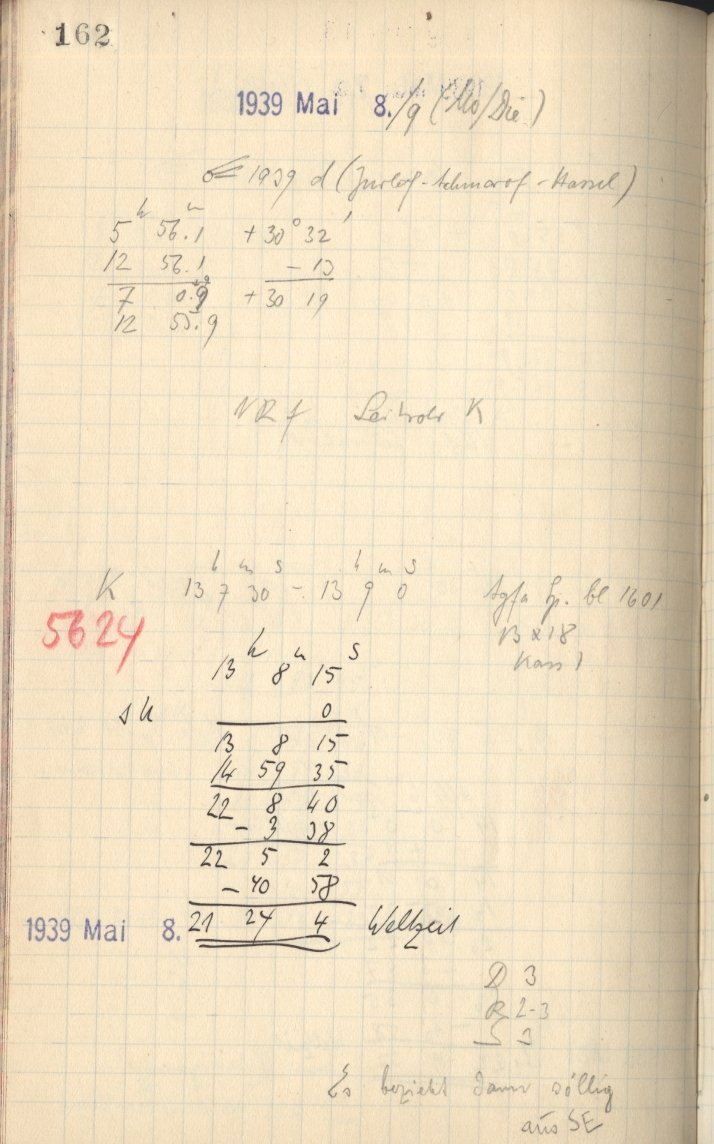 162
1939 Mai 8./9 (Mo/Die)
1939 d (Jurlof-Achmarof-Hassel)
h m
5 56.1 +30° 32'
12 56.1 - 13
7 0.9 +30 19
12 55.9
NRf Leitrohr K
h m s h m s
K 13 7 30 - 13 9 0
5624
Agfa Sp. bl 1601
13 x 18
Kass 1
h m s
13 8 15
0
13 8 15
14 59 35
22 8 40
- 3 38
22 5 2
- 40 58
1939 Mai 8. 21 24 4 Weltzeit
D 3
R 2-3
S 3
Es bezieht dann völlig
aus SE